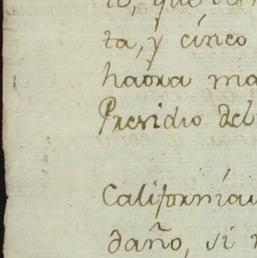 to, que
ta, y cinco
haora
Presidio del
California
daño, si